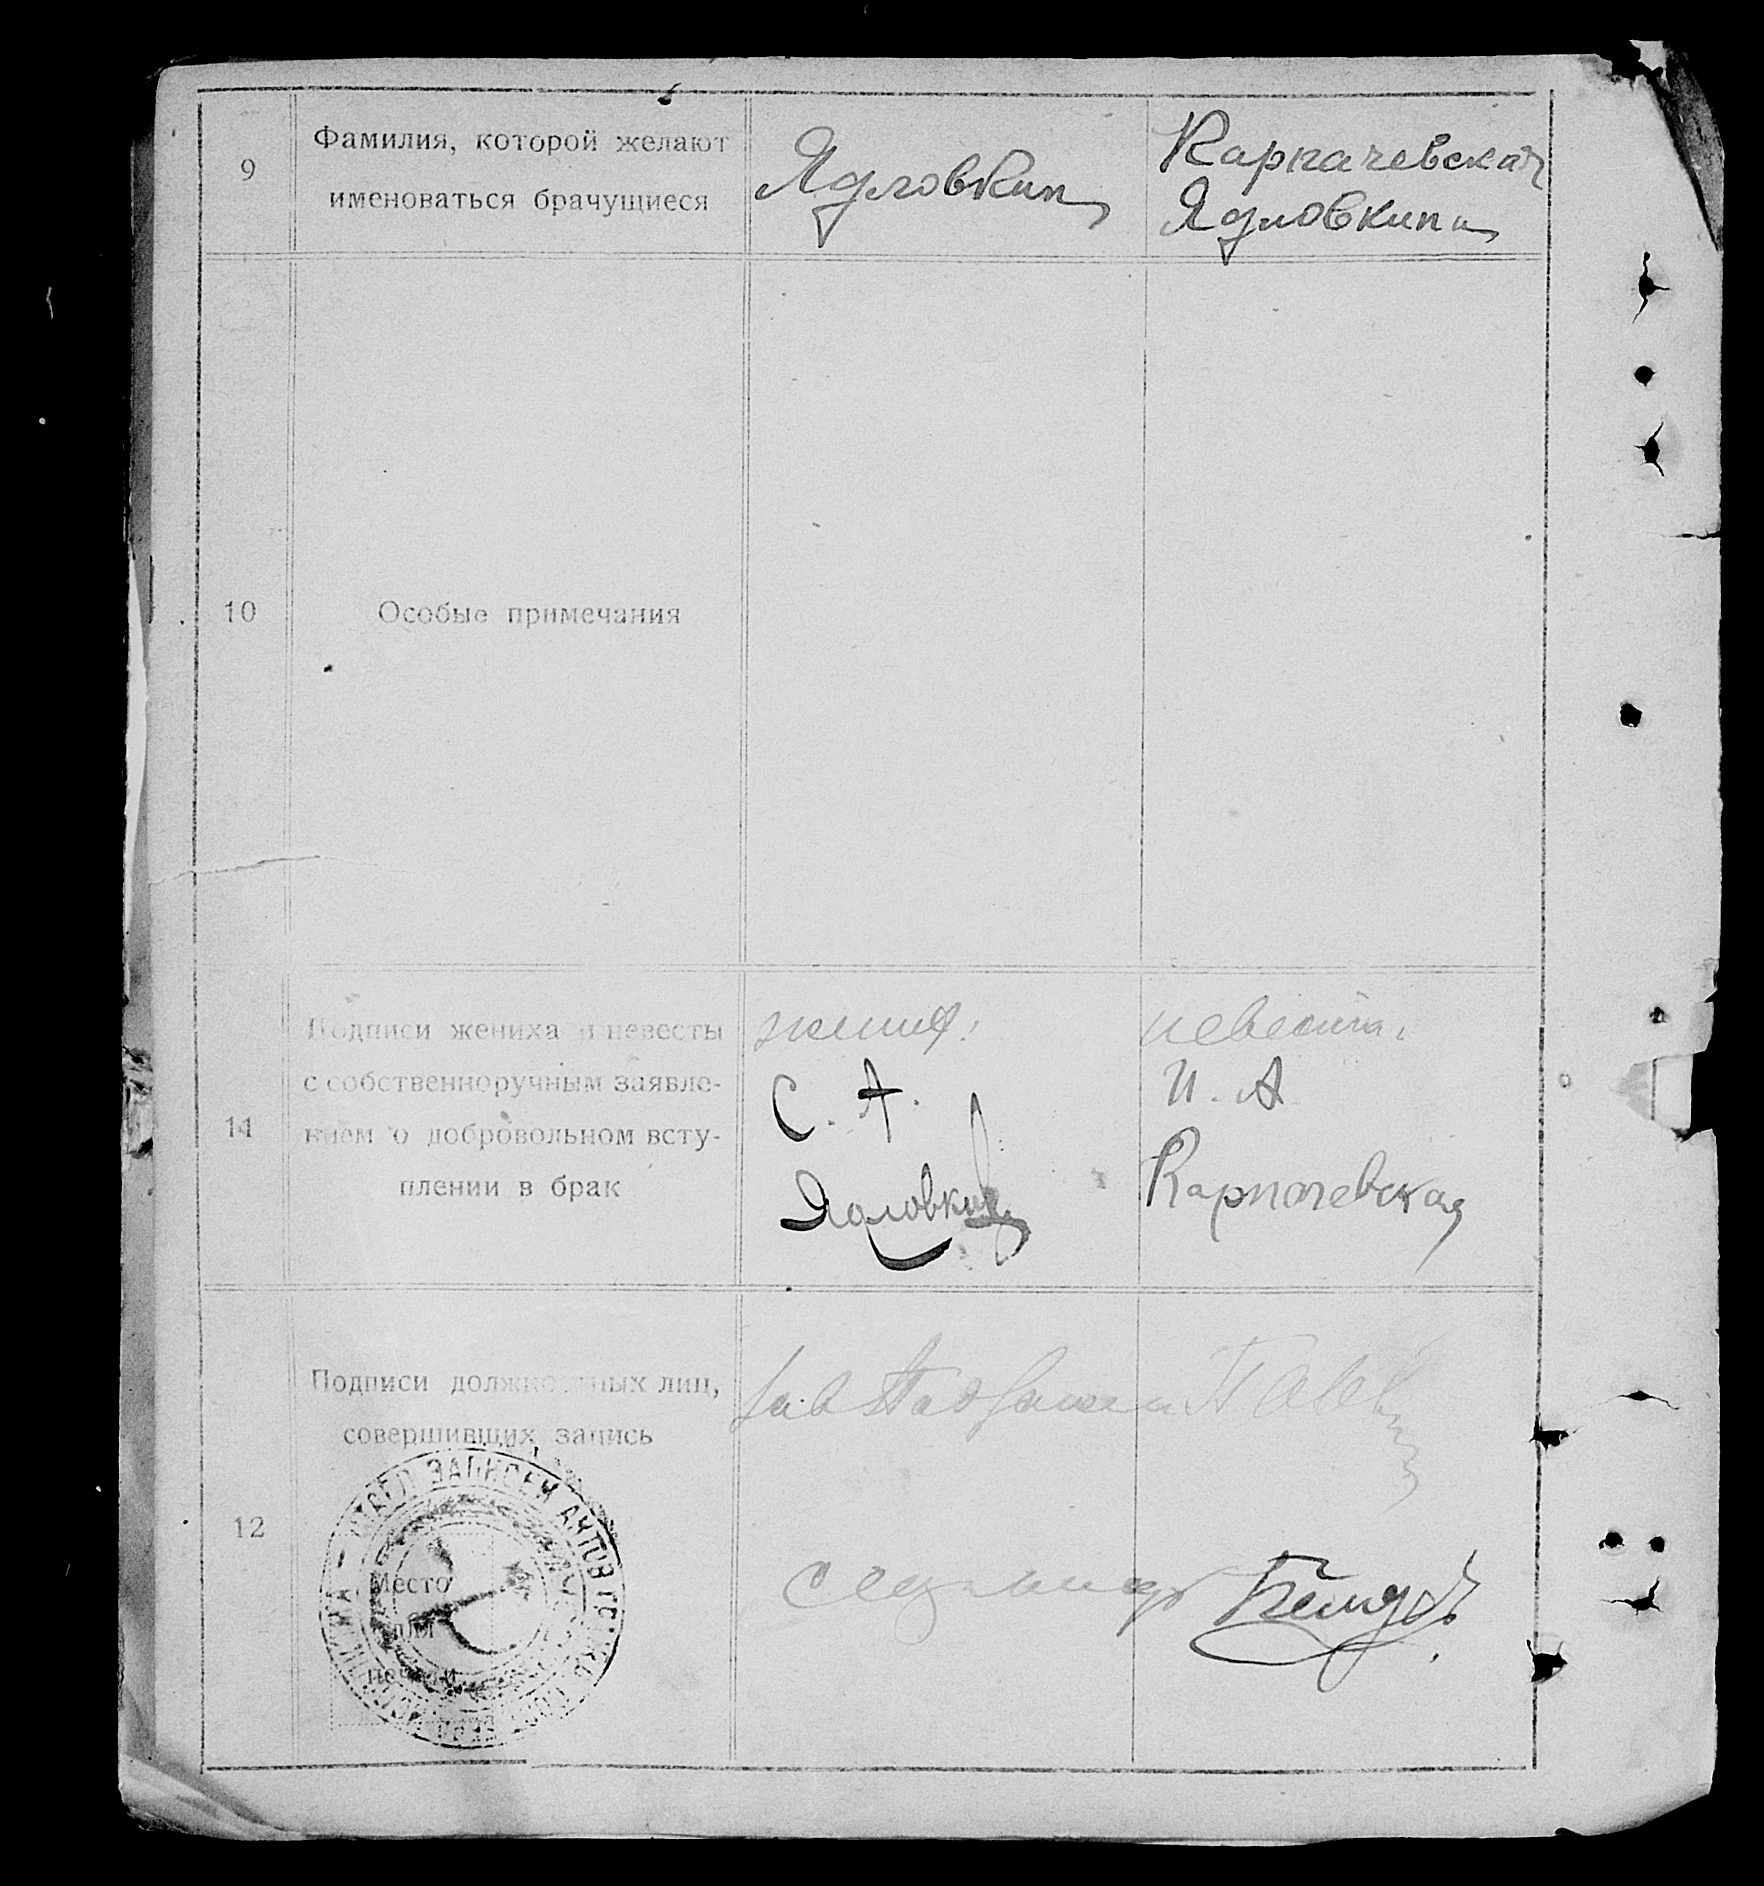 9
Фамилия, которой желают
именоваться брачущиеся
Ядловкин
Карпачевская
Ядловкина
10
Особые примечания
11
Подписи жениха и невесты
с собственноручным заявле-
нием о добровольном всту-
плении в брак
жених:
С. А.
Ядловкин
невеста:
И. А
Карпачевская
12
Подписи должностных лиц,
совершивших запись
ЗАПИСЕЙ АКТОВ
Место
для
печати
Зав